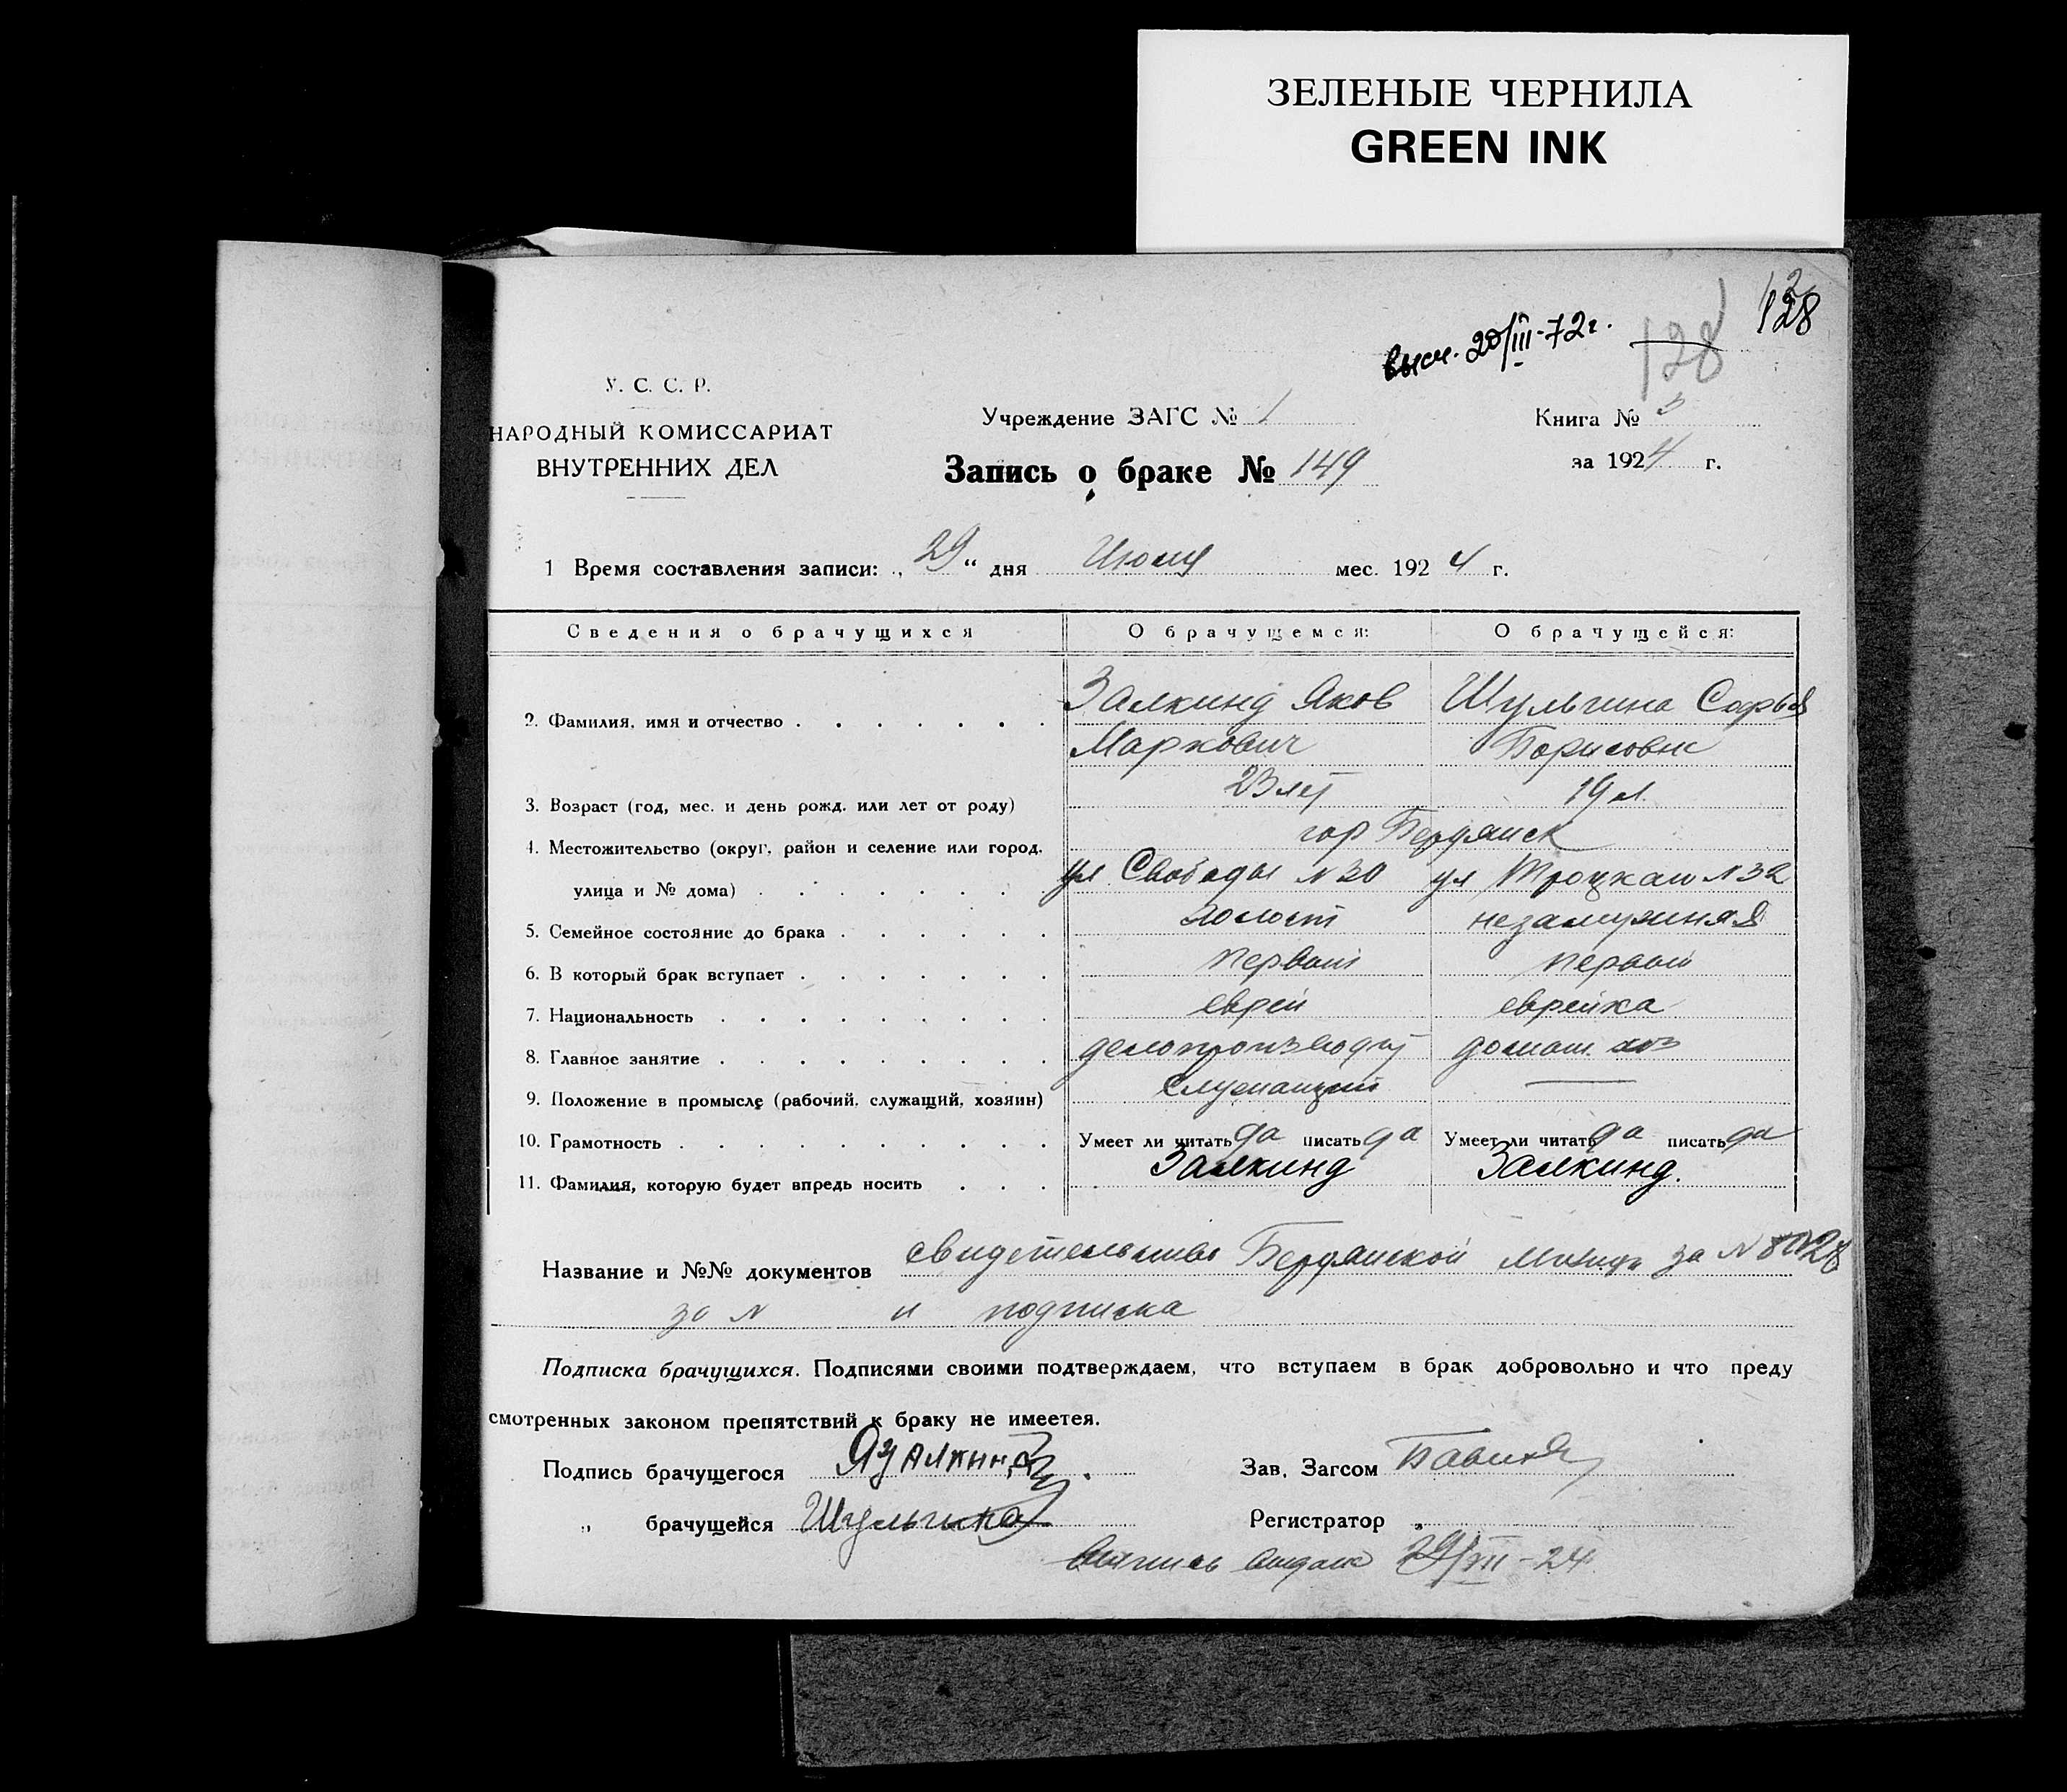 ЗЕЛЕНЫЕ ЧЕРНИЛА
GREEN INK
128
высл. 20/III-72г.
128
У. С. С. Р.
НАРОДНЫЙ КОМИССАРИАТ
ВНУТРЕННИХ ДЕЛ
Учреждение ЗАГС № 1
Книга № 3
за 1924 г.
Запись о браке № 149
1 Время составления записи: „29“ дня Июля мес. 1924 г.
Сведения о брачущихся О брачущемся: О брачущейся:
2. Фамилия, имя и отчество Залкинд Яков Шульгина Софья
Маркович Борисовна
3. Возраст (год, мес. и день рожд. или лет от роду) 23 лет 19 л.
4. Местожительство (округ, район и селение или город, гор Бердянск
улица и № дома) ул Свободы №30 ул Троцкаго №32
5. Семейное состояние до брака холост незамужняя
6. В который брак вступает первый первый
7. Национальность еврей еврейка
8. Главное занятие делопроизвод домаш. хоз
9. Положение в промысле (рабочий, служащий, хозяин) служащий —
10. Грамотность Умеет ли читать да писать да Умеет ли читать да писать да
11. Фамилия, которую будет впредь носить Залкинд Залкинд.
Название и №№ документов свидетельства Бердянской милици за №
за № и подписка
Подписка брачущихся. Подписями своими подтверждаем, что вступаем в брак добровольно и что преду
смотренных законом препятствий к браку не имеетея.
Подпись брачущегося ЯЗалкинд Зав. Загсом
„ брачущейся Шульгина Регистратор
Выпись выдана 29/VII-24